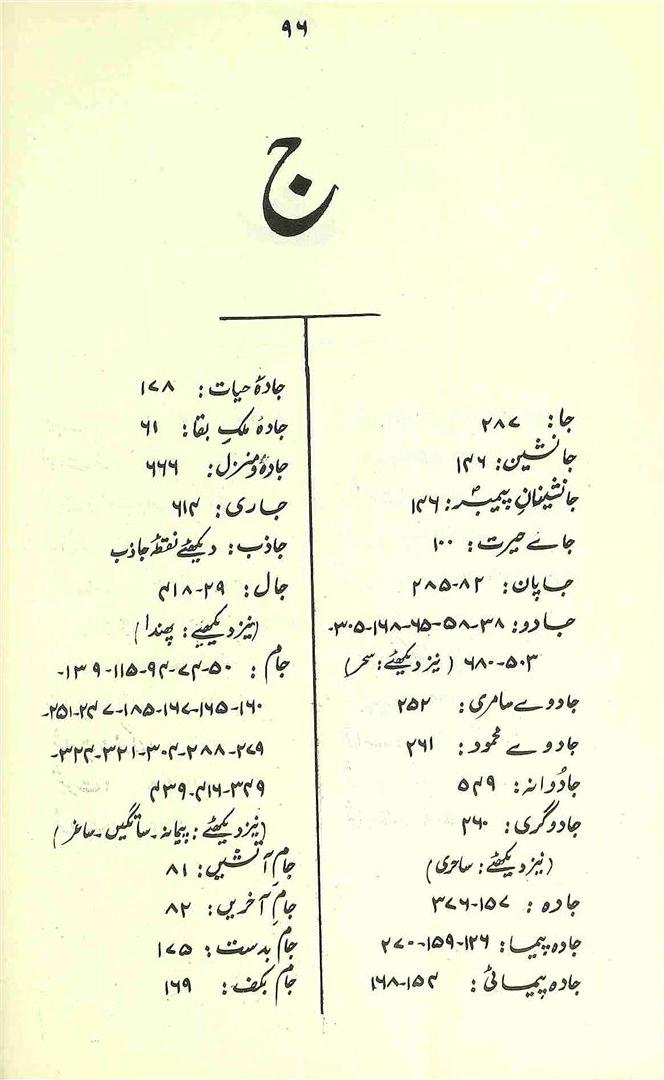 ۹۶
ج
جا: ۲۸۷
جانشین: ۱۴۶
جانشینانِ پیمبرؐ: ۱۴۶
جاے حیرت: ۱۰۰
جاپان: ۸۲-۲۸۵
جادو: ۳۸-۵۸-۶۵-۱۶۸-۳۰۵-
۵۰۳-۶۸۰ (نیز دیکھئے: سحر)
جادوے سامری: ۲۵۲
جادوے محمود: ۲۶۱
جادُوانہ: ۵۴۹
جادوگری: ۲۶۰
(نیز دیکھئے: ساحری)
جادہ: ۱۵۷-۳۷۶
جادہ پیما: ۱۲۶-۱۵۹-۲۷۰
جادہ پیمائی: ۱۵۴-۱۶۸
جادۂ حیات: ۱۷۸
جادۂ ملکِ بقا: ۶۱
جادۂ و منزل: ۶۶۶
جاری: ۶۱۴
جاذب: دیکھئے نقطۂ جاذب
جال: ۲۹-۴۱۸
(نیز دیکھیے: پھندا)
جام: ۵۰-۷۴-۹۴-۱۱۵-۱۳۹-
۱۶۰-۱۶۵-۱۶۷-۱۸۵-۲۴۷-۲۵۱-
۲۷۹-۲۸۸-۳۰۴-۳۲۱-۳۲۴-
۳۴۹-۴۱۶-۴۳۹
(نیز دیکھئے: پیمانہ۔ ساتگیں۔ ساغر)
جامِ آتشیں: ۸۱
جامِ آخریں: ۸۲
جام بدست: ۱۷۵
جام بکف: ۱۶۹